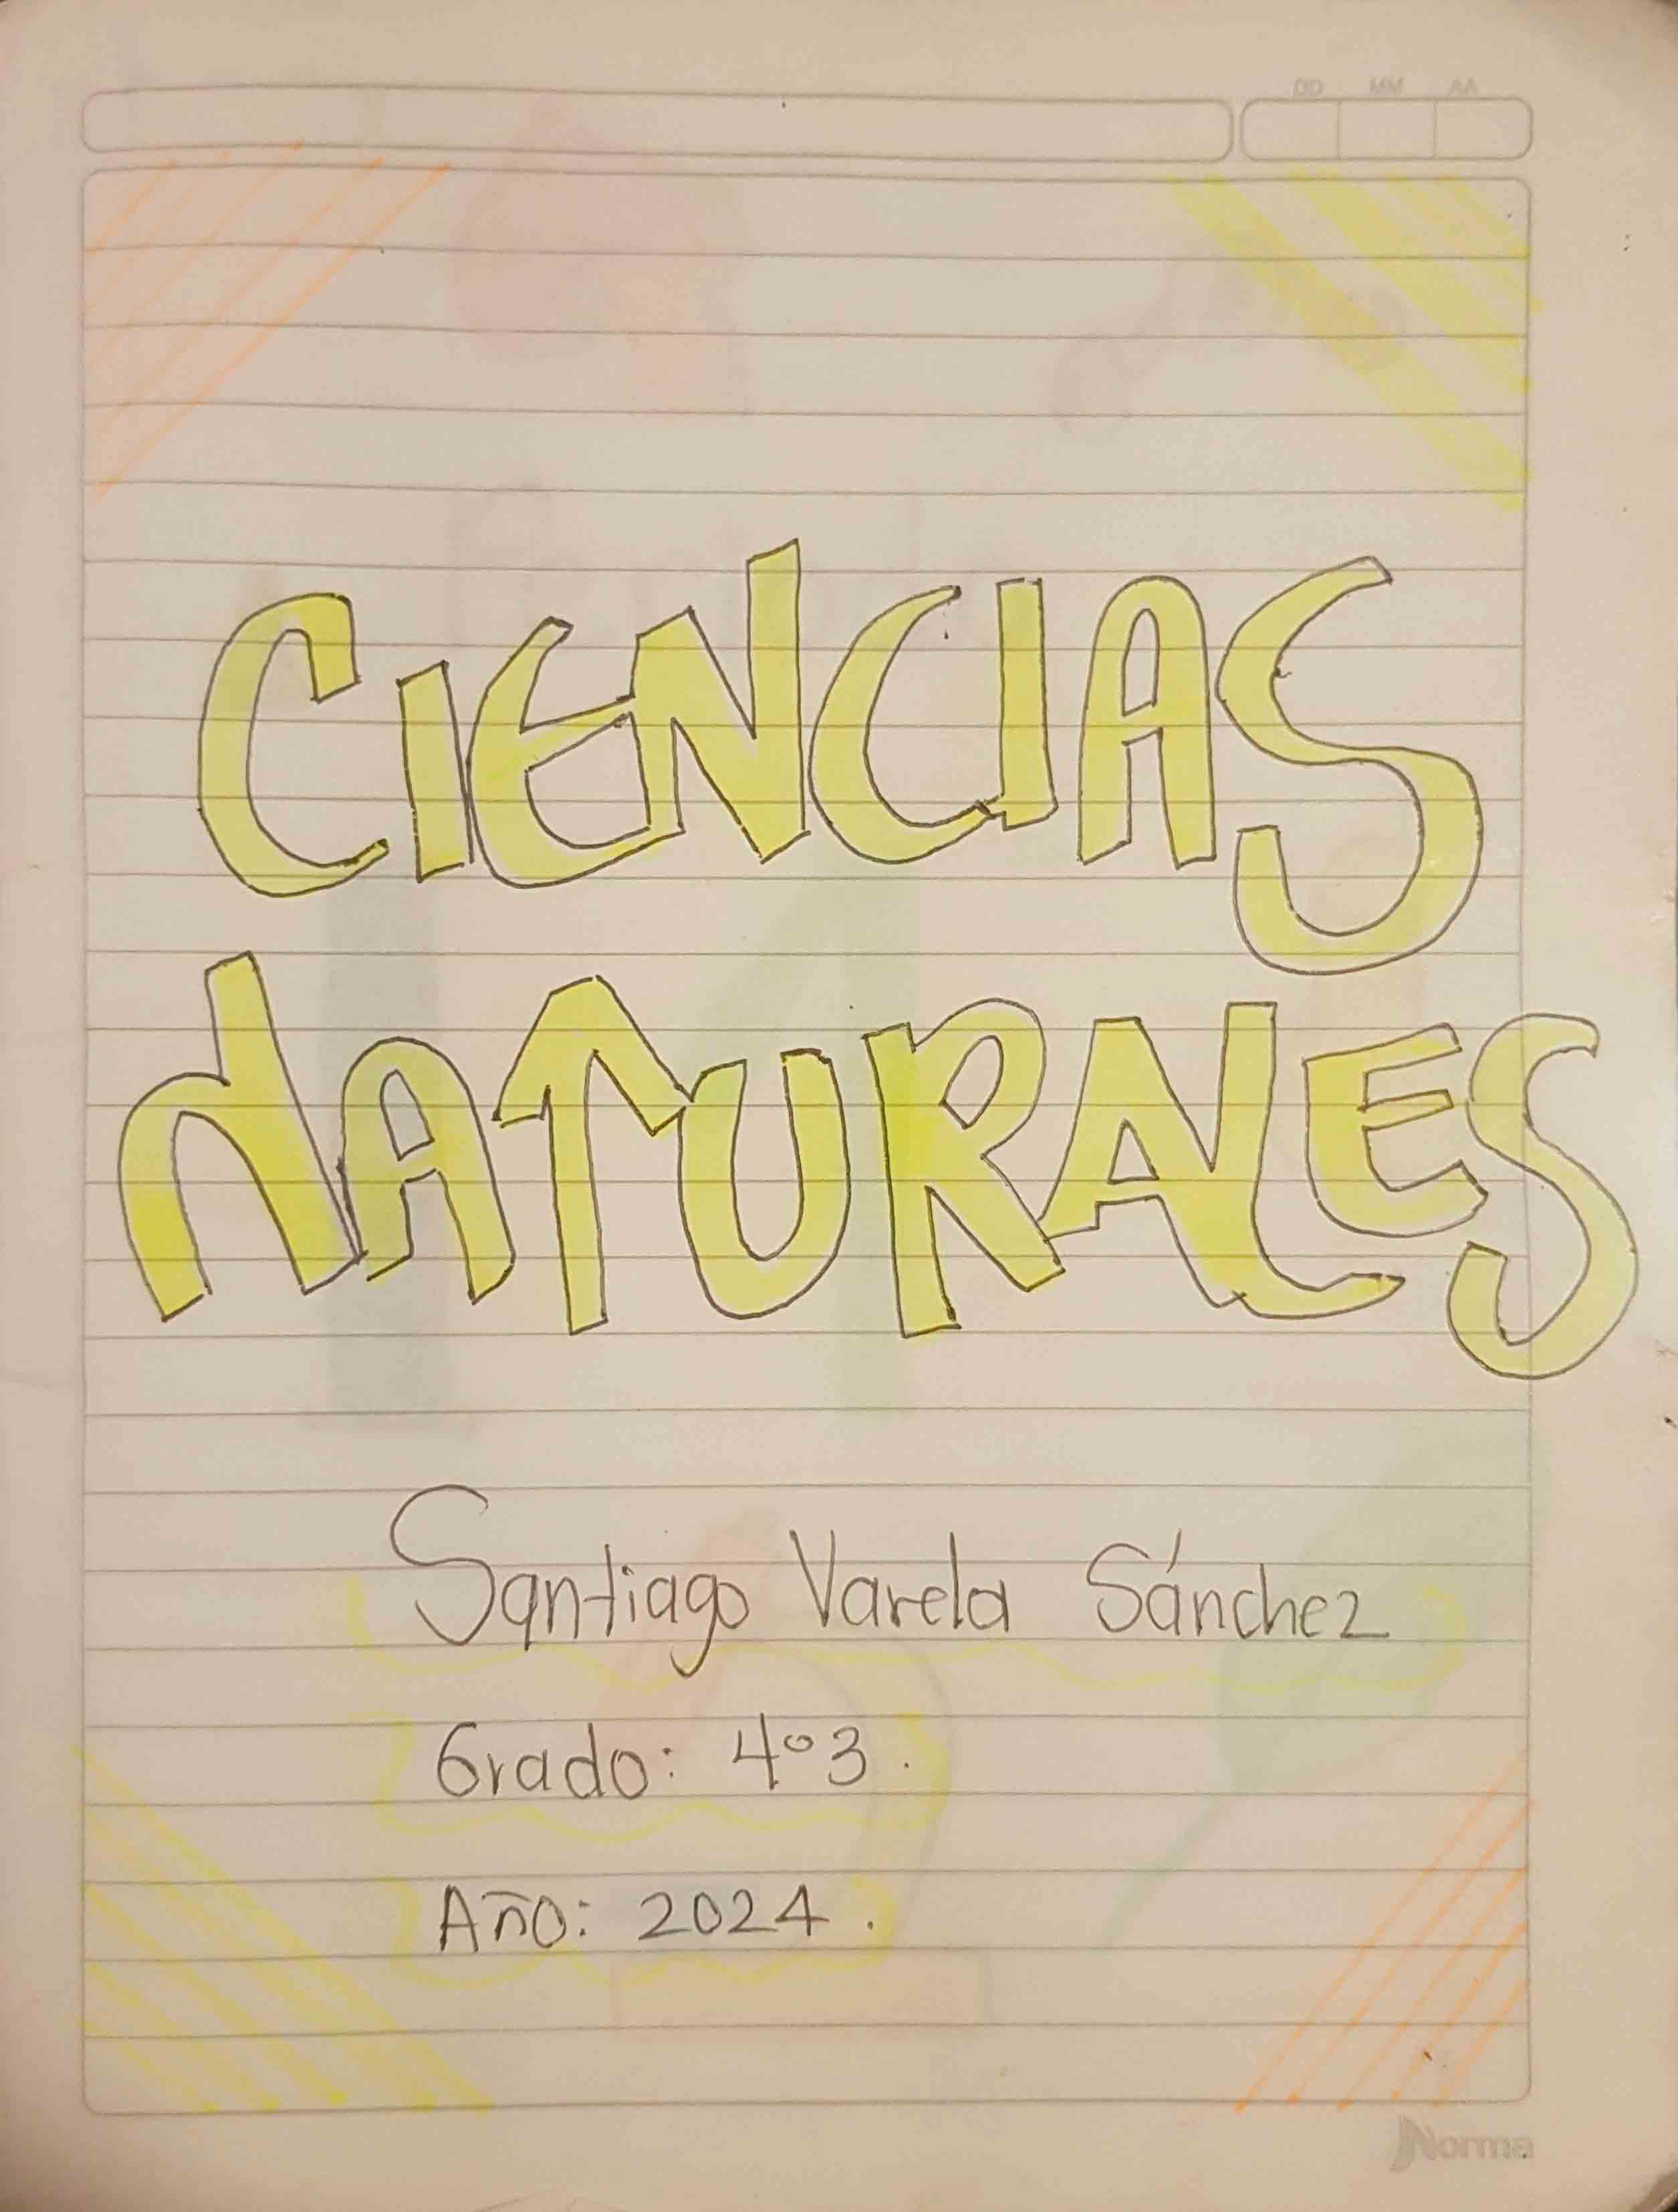 DD MM AA
CIENCIAS
NATURALES
Santiago Varela Sánchez
Grado: 4°3.
Año: 2024.
Norma